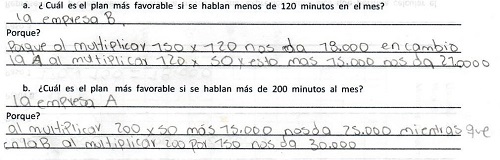 a. ¿ Cuál es el plan más favorable si se hablan menos de 120 minutos en el mes?
la empresa B
Porque?
Porque al multiplicar 150 x 120 nos da 18.000 en cambio
la A al multiplicar 120 x 50 y esto mas 15.000 nos da 21.0000
b. ¿Cuál es el plan más favorable si se hablan más de 200 minutos al mes?
la empresa A
Porque?
al multiplicar 200 x 50 más 15.000 nos da 25.000 mientras que
en la B al multiplicar 200 por 150 nos da 30.000